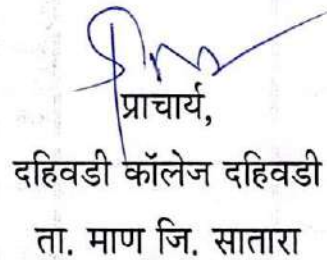 प्राचार्य,
दहिवडी कॉलेज दहिवडी
ता. माण जि. सातारा